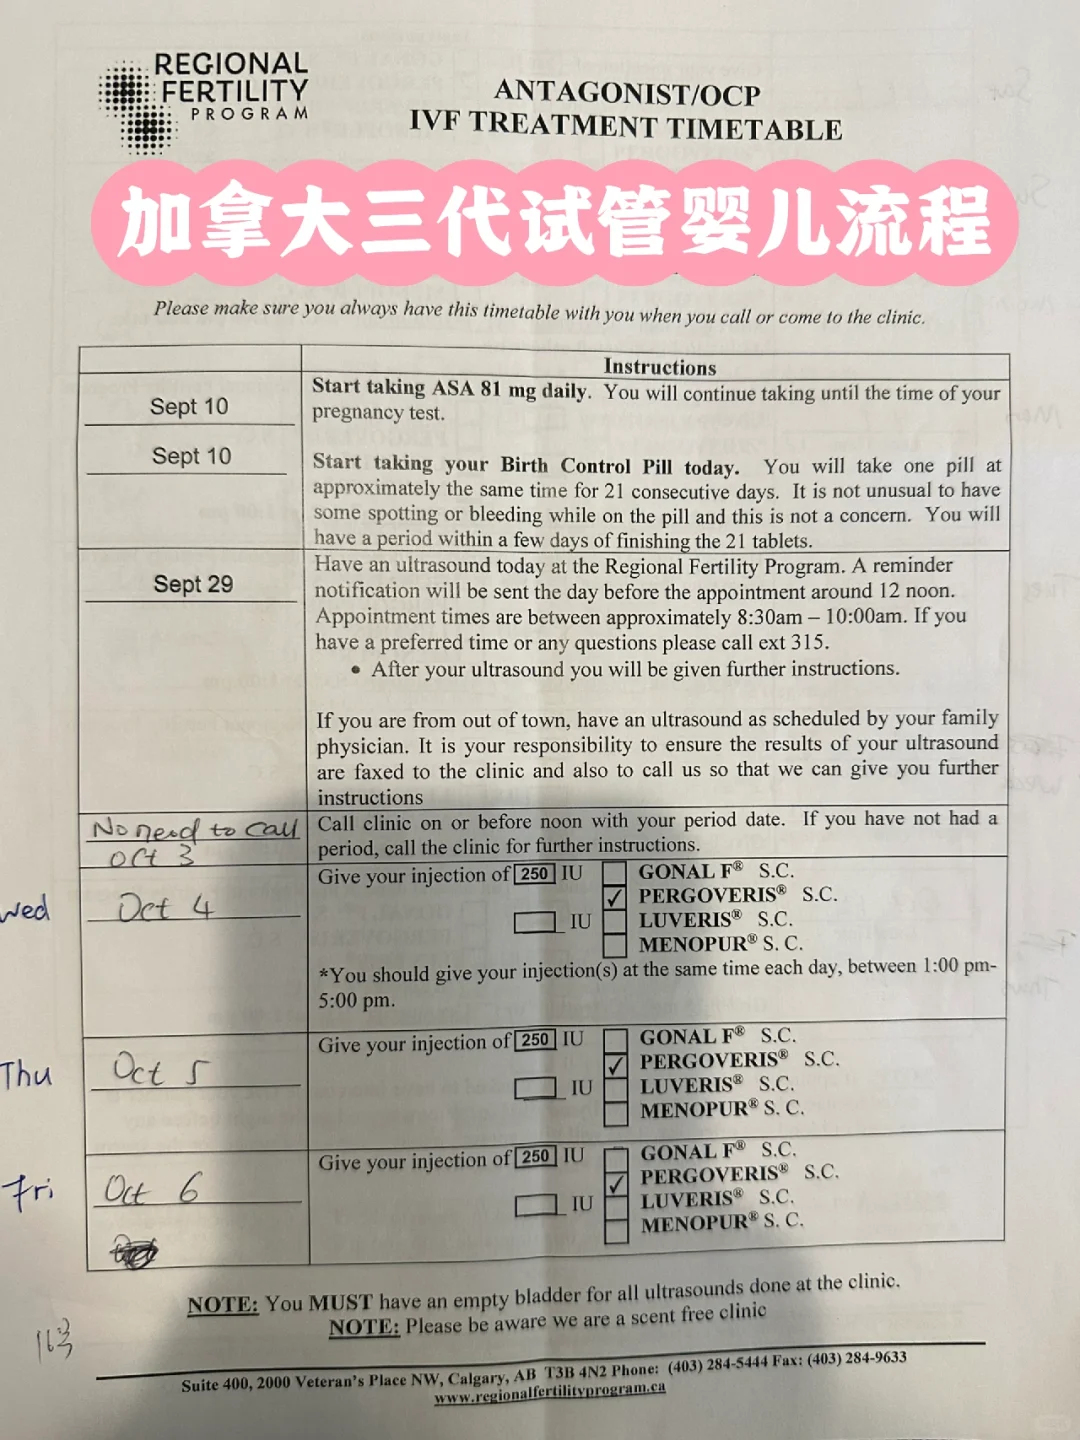 REGIONAL
FERTILITY
PROGRAM
ANTAGONIST/OCP
IVF TREATMENT TIMETABLE
加拿大三代试管婴儿流程
Please make sure you always have this timetable with you when you call or come to the clinic.
Instructions
Sept 10
Start taking ASA 81 mg daily. You will continue taking until the time of your
pregnancy test.
Sept 10
Start taking your Birth Control Pill today. You will take one pill at
approximately the same time for 21 consecutive days. It is not unusual to have
some spotting or bleeding while on the pill and this is not a concern. You will
have a period within a few days of finishing the 21 tablets.
Sept 29
Have an ultrasound today at the Regional Fertility Program. A reminder
notification will be sent the day before the appointment around 12 noon.
Appointment times are between approximately 8:30am – 10:00am. If you
have a preferred time or any questions please call ext 315.
• After your ultrasound you will be given further instructions.
If you are from out of town, have an ultrasound as scheduled by your family
physician. It is your responsibility to ensure the results of your ultrasound
are faxed to the clinic and also to call us so that we can give you further
instructions
No need to call
Oct 3
Call clinic on or before noon with your period date. If you have not had a
period, call the clinic for further instructions.
Wed
Oct 4
Give your injection of 250 IU
IU
GONAL F® S.C.
✓ PERGOVERIS® S.C.
LUVERIS® S.C.
MENOPUR® S. C.
*You should give your injection(s) at the same time each day, between 1:00 pm-
5:00 pm.
Thu
Oct 5
Give your injection of 250 IU
IU
GONAL F® S.C.
✓ PERGOVERIS® S.C.
LUVERIS® S.C.
MENOPUR® S. C.
Fri
Oct 6
Give your injection of 250 IU
IU
GONAL F® S.C.
✓ PERGOVERIS® S.C.
LUVERIS® S.C.
MENOPUR® S. C.
NOTE: You MUST have an empty bladder for all ultrasounds done at the clinic.
NOTE: Please be aware we are a scent free clinic
16号
Suite 400, 2000 Veteran's Place NW, Calgary, AB T3B 4N2 Phone: (403) 284-5444 Fax: (403) 284-9633
www.regionalfertilityprogram.ca